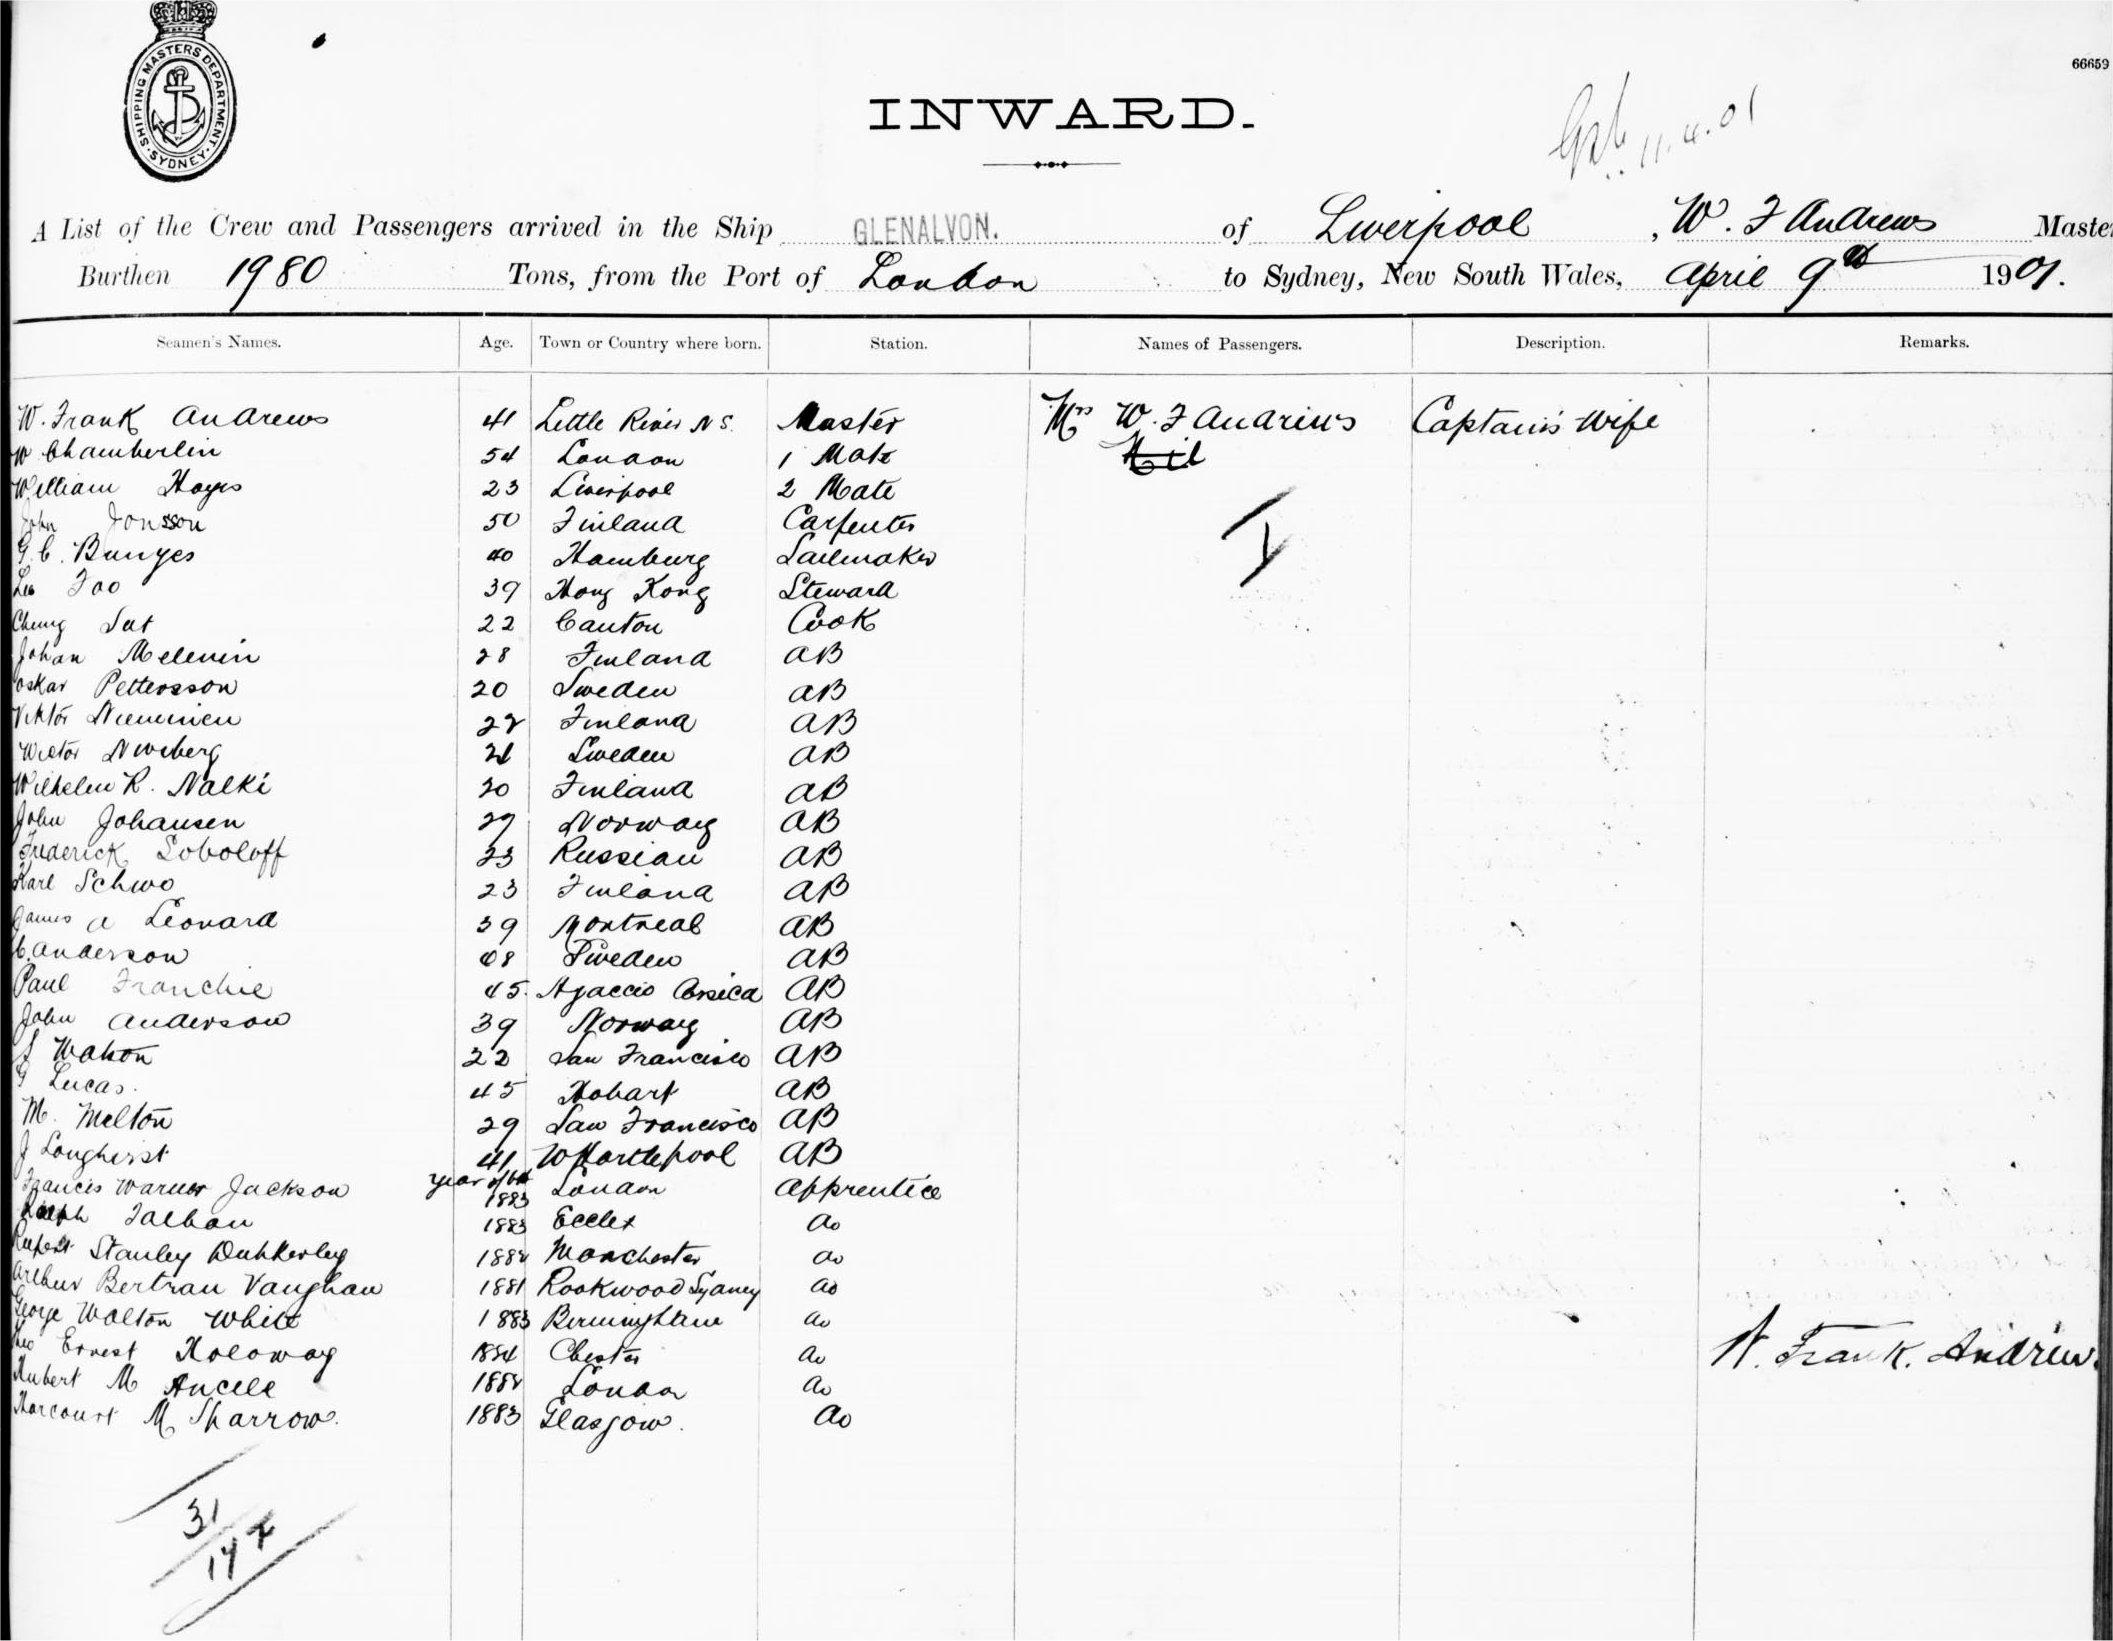 SHIPPING MASTERS DEPARTMENT. SYDNEY
66659
INWARD.
11.4.01
A List of the Crew and Passengers arrived in the Ship GLENALVON. of Liverpool, W. F Andrews Master
Burthen 1980 Tons, from the Port of London to Sydney, New South Wales, April 9th 1901.
Seamen's Names. Age. Town or Country where born. Station. Names of Passengers. Description. Remarks.
W. Frank Andrews 41 Little River N S. Master Mrs W. F Andrews Captain's Wife
W Chamberlin 54 London 1 Mate Nil
William Hayes 23 Liverpool 2 Mate
John Jonsson 50 Finland Carpenter
G. C. Bunyes 40 Hamburg Sailmaker
Foo 39 Hong Kong Steward
Chung Sut 22 Canton Cook
Johan Melenin 28 Finland AB
Oskar Pettersson 20 Sweden AB
Viktor Nieminen 22 Finland AB
Wictor 21 Sweden AB
Wilhelm R. Nalki 20 Finland AB
John Johansen 29 Norway AB
Frederick Soboloff 23 Russian AB
Karl Schwo 23 Finland AB
James A Leonard 39 Montreal AB
C. Anderson 48 Sweden AB
Paul Franchie 45. Ajaccio Corsica AB
John Anderson 39 Norway AB
Walton 22 San Francisco AB
G Lucas. 45 Hobart AB
M. Melton 29 San Francisco AB
J Longhirst 41 W Hartlepool AB
year of bth
Francis Warner Jackson 1883 London Apprentice
Ralph 1883 Eccles do
Rupert Stanley Dunkerley 1884 Manchester do
Arthur Bertran Vaughan 1881 Rookwood Sydney do
George Walton White 1883 Birmingham do
Ernest Holoway 1884 Chester do
Hubert M Ancell 1884 London do
Harcourt M Sharrow. 1883 Glasgow. do
W. Frank. Andrews
31